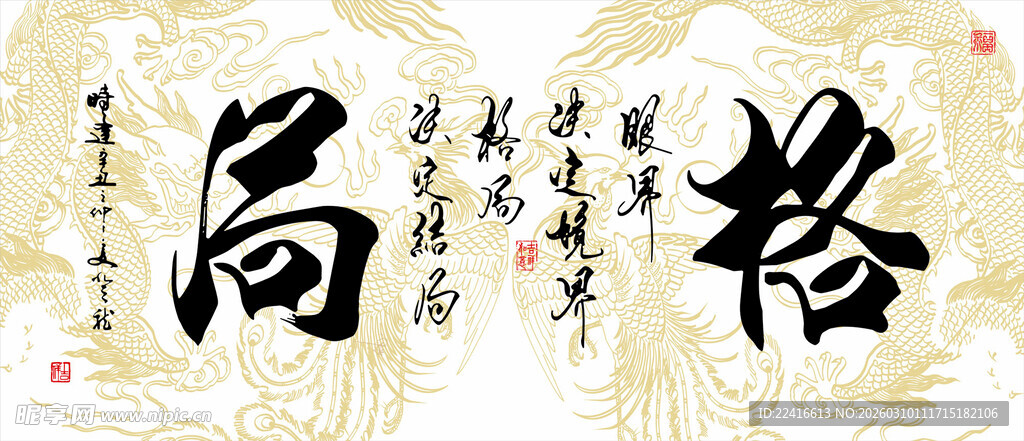 格
眼界
决定境界
格局
决定结局
局
時逢辛丑之仲夏
昵享网 www.nipic.cn
ID:22416613 NO:20260310111715182106